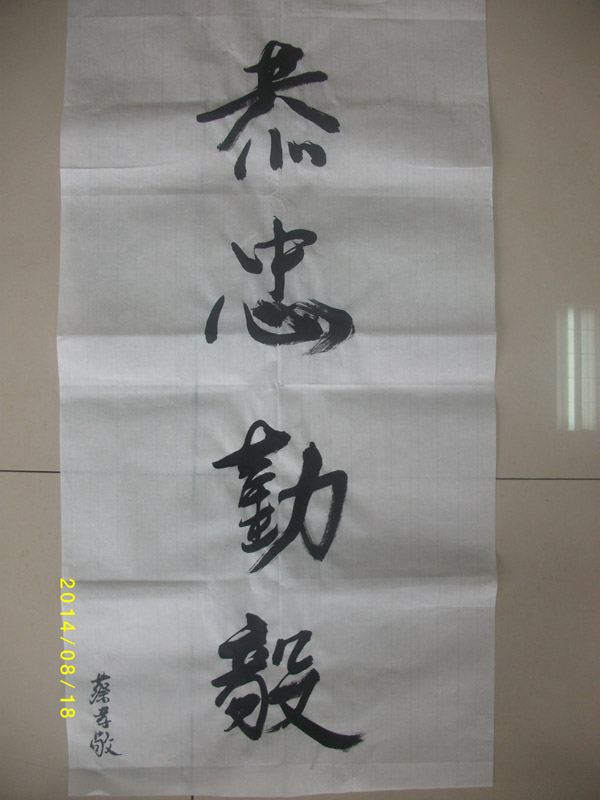 恭忠勤毅
蔡孝敬
2014/08/18